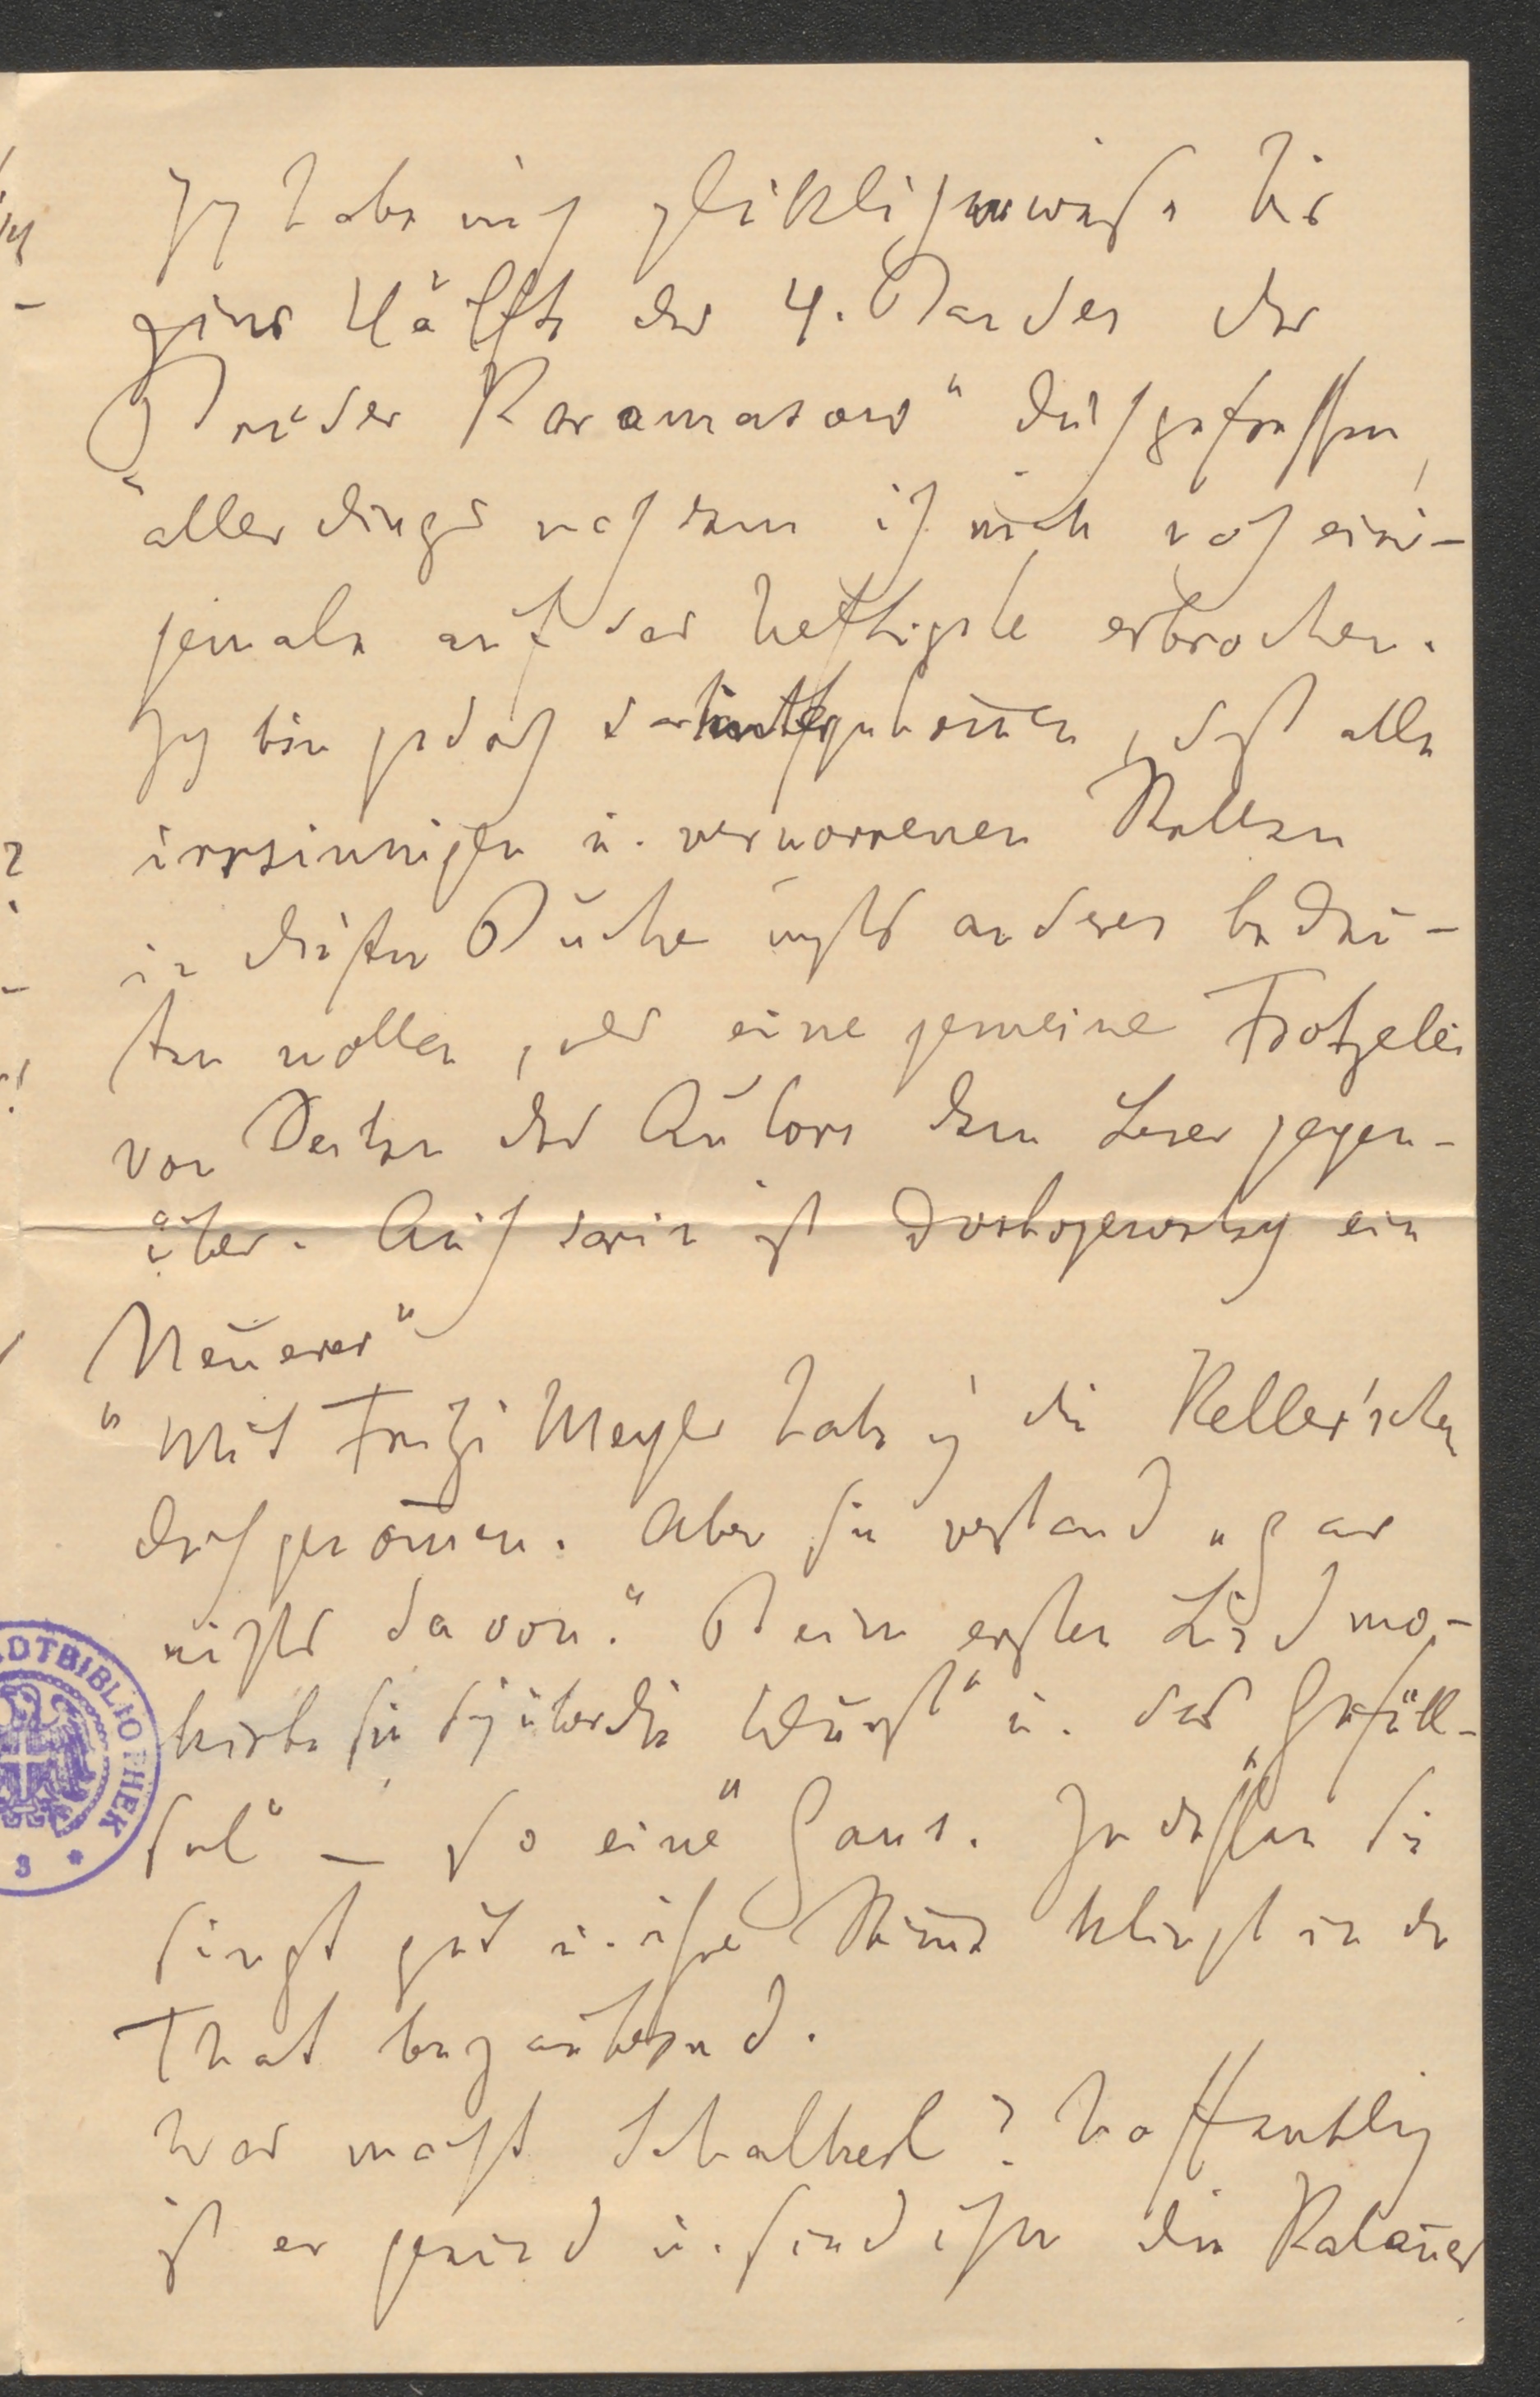 Ich habe mich glücklicherweise bis
zur Hälfte des 4. Bandes der
„Brüder Karamasow“ durchgefressen,
allerdings nachdem ich mich noch eini-
gemale auf das heftigste erbrochen.
Ich bin jedoch dahintergekom̅en, daß alle
irrsinnigen u. verworrenen Stellen
in diesem Buche nichts anderes bedeu-
ten wollen, als eine gemeine Frotzelei
von Seiten des Autors dem Leser gegen-
über. Auch darin ist Dostojewsky ein
„Neuerer“
Mit Fritzi Meyer habe ich die Keller'schen
durchgenom̅en. Aber sie verstand „gar
nichts davon.“ Beim ersten Lied mo-
kirte sie sich über die „Wurst“ u. das „Gefüll-
sel“ — so eine „Gans. Indessen sie
singt gut u. ihre Stim̅e klingt in der
That bezaubernd.
Was macht Schalherl? Hoffentlich
ist er gesund u. sind ihm die Kalauer
STADTBIBLIOTHEK